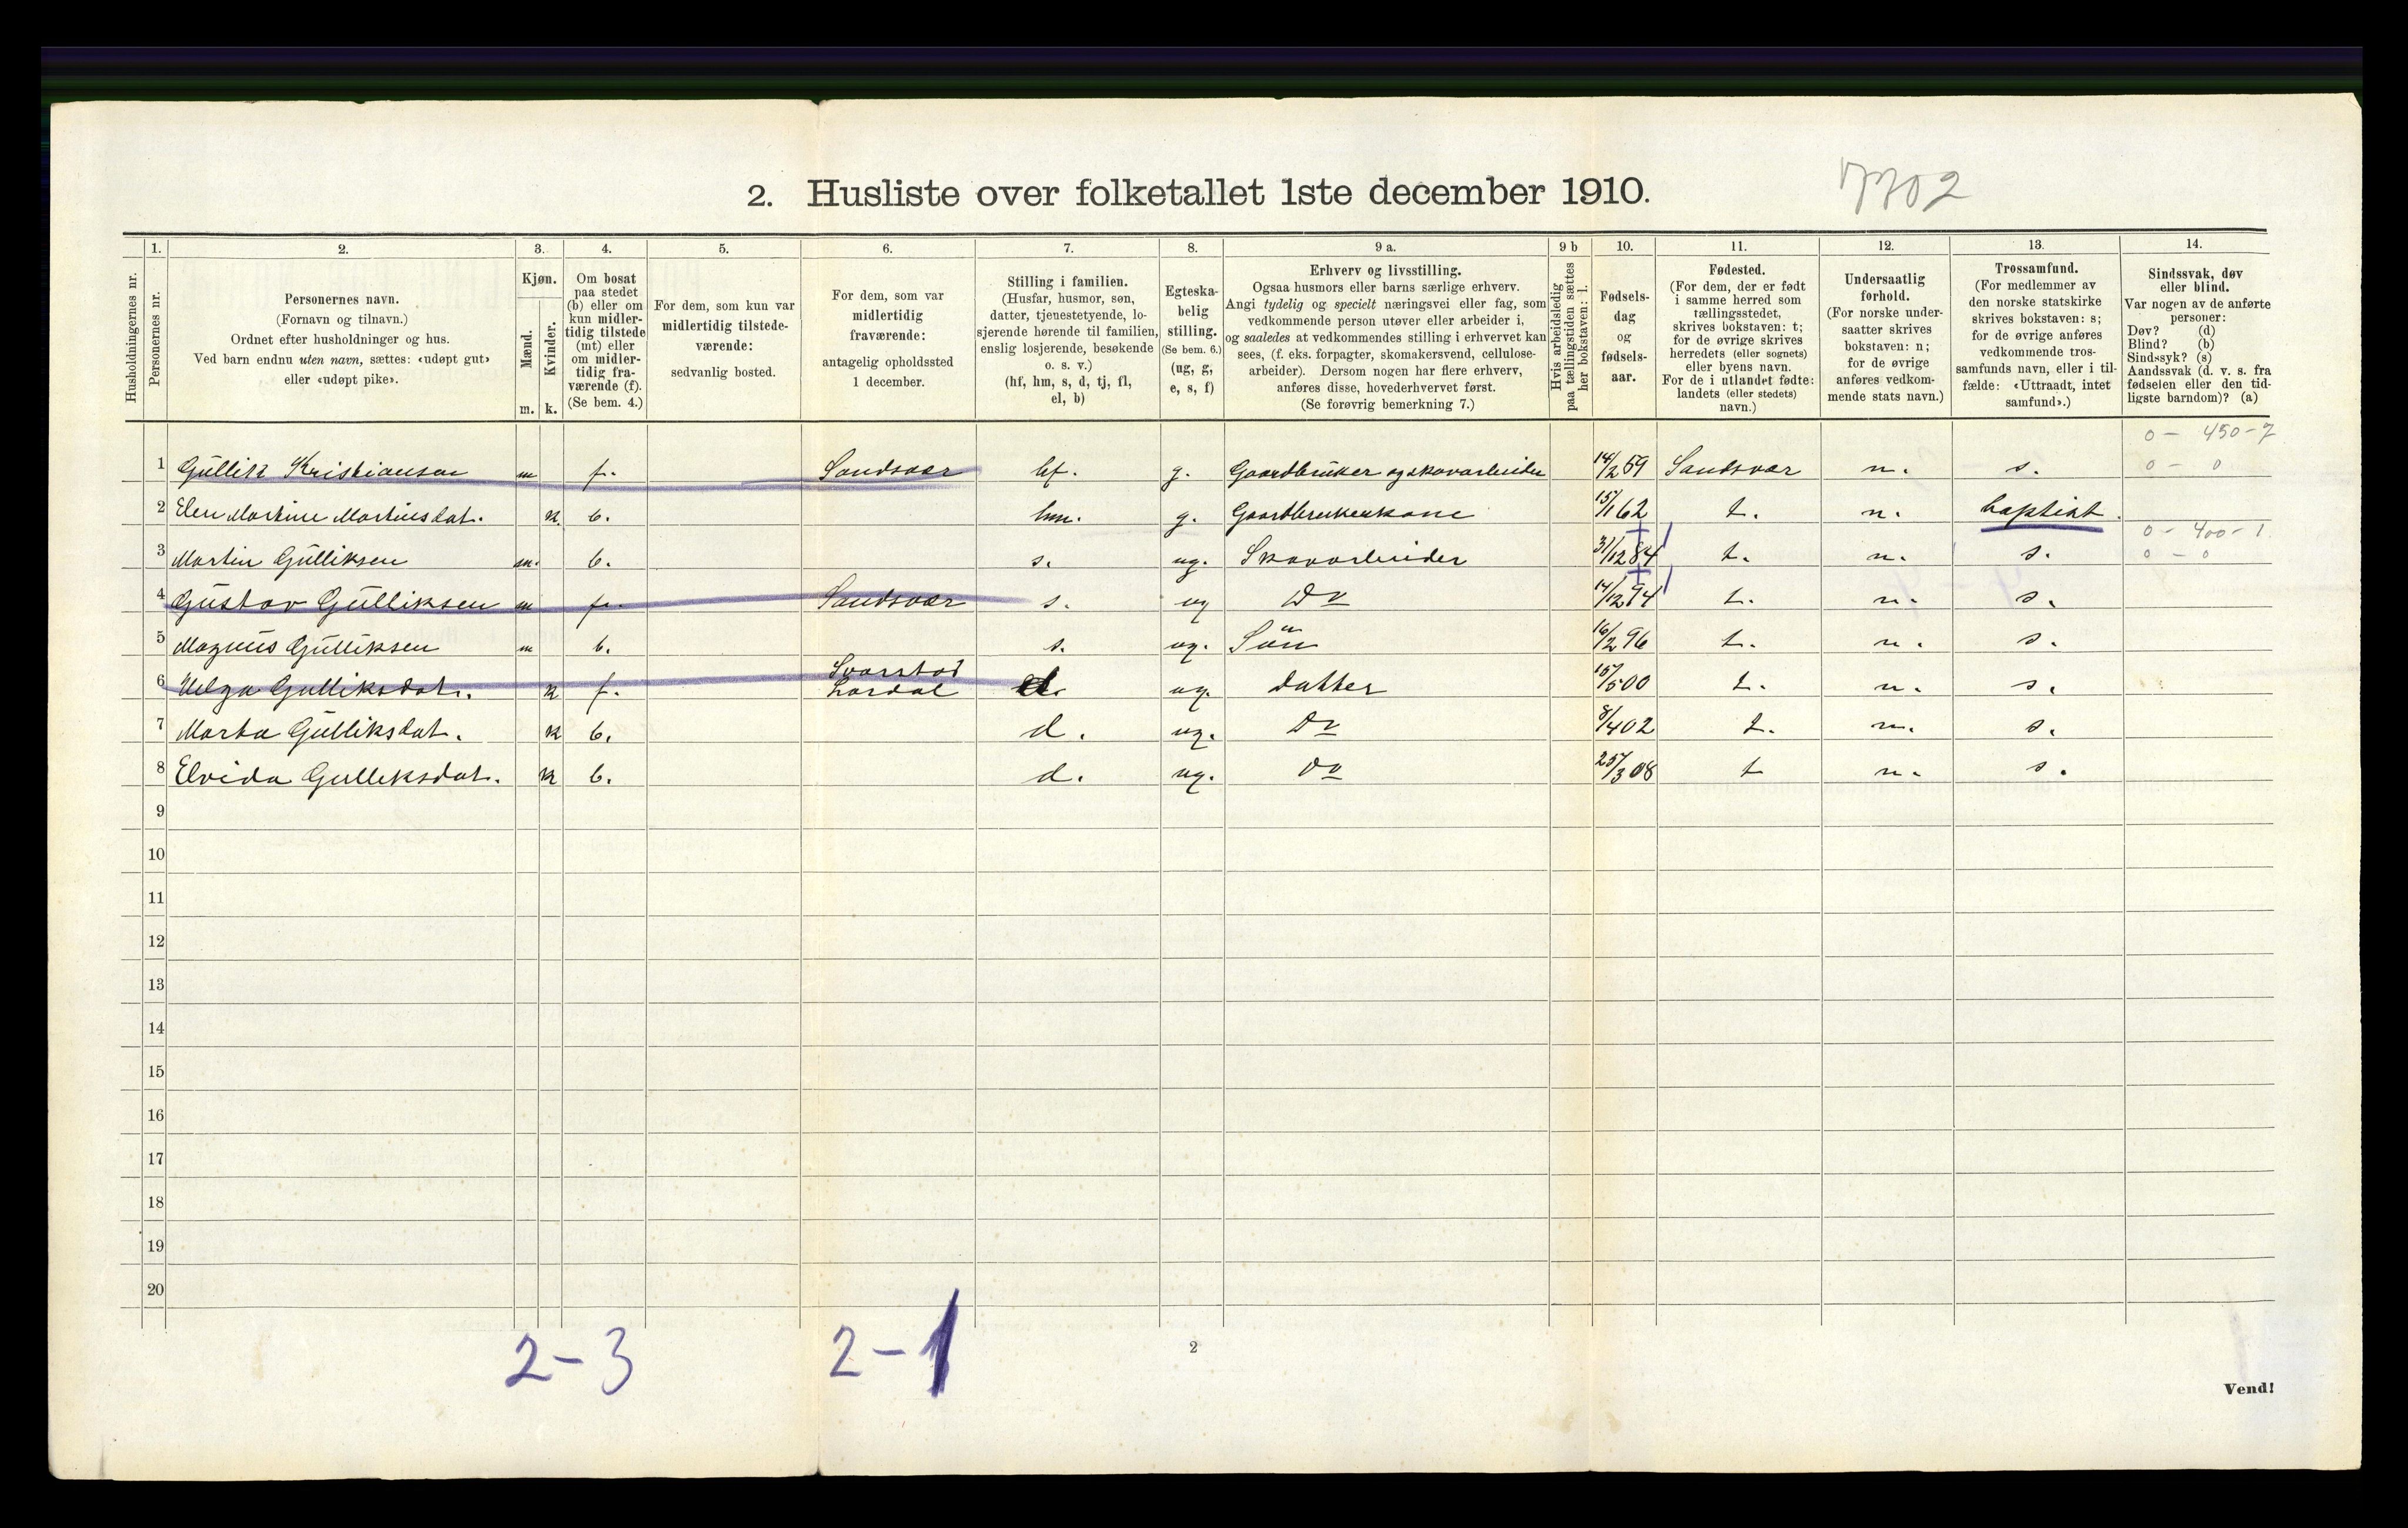 2. Husliste over folketallet 1ste december 1910.
7702
Husholdningernes nr.
1.
Personernes nr.
2.
Personernes navn.
(Fornavn og tilnavn.)
Ordnet efter husholdninger og hus.
Ved barn endnu uten navn, sættes: «udøpt gut»
eller «udøpt pike».
3.
Kjøn.
Mænd.
Kvinder.
m. k.
4.
Om bosat
paa stedet
(b) eller om
kun midler-
tidig tilstede
(mt) eller
om midler-
tidig fra-
værende (f).
(Se bem. 4.)
5.
For dem, som kun var
midlertidig tilstede-
værende:
sedvanlig bosted.
6.
For dem, som var
midlertidig
fraværende:
antagelig opholdssted
1 december.
7.
Stilling i familien.
(Husfar, husmor, søn,
datter, tjenestetyende, lo-
sjerende hørende til familien,
enslig losjerende, besøkende
o. s. v.)
(hf, hm, s, d, tj, fl,
el, b)
8.
Egteska-
belig
stilling.
(Se bem. 6.)
(ug, g,
e, s, f)
9 a.
Erhverv og livsstilling.
Ogsaa husmors eller barns særlige erhverv.
Angi tydelig og specielt næringsvei eller fag, som
vedkommende person utøver eller arbeider i,
og saaledes at vedkommendes stilling i erhvervet kan
sees, (f. eks. forpagter, skomakersvend, cellulose-
arbeider). Dersom nogen har flere erhverv,
anføres disse, hovederhvervet først.
(Se forøvrig bemerkning 7.)
9 b
Hvis arbeidsledig
paa tællingstiden sættes
her bokstaven: l.
10.
Fødsels-
dag
og
fødsels-
aar.
11.
Fødested.
(For dem, der er født
i samme herred som
tællingsstedet,
skrives bokstaven: t;
for de øvrige skrives
herredets (eller sognets)
eller byens navn.
For de i utlandet fødte:
landets (eller stedets)
navn.)
12.
Undersaatlig
forhold.
(For norske under-
saatter skrives
bokstaven: n;
for de øvrige
anføres vedkom-
mende stats navn.)
13.
Trossamfund.
(For medlemmer av
den norske statskirke
skrives bokstaven: s;
for de øvrige anføres
vedkommende tros-
samfunds navn, eller i til-
fælde: «Uttraadt, intet
samfund».)
14.
Sindssvak, døv
eller blind.
Var nogen av de anførte
personer:
Døv? (d)
Blind? (b)
Sindssyk? (s)
Aandssvak (d. v. s. fra
fødselen eller den tid-
ligste barndom)? (a)
0 - 450 - 7
1 Gullik Kristiansen m f. Sandsvær hf. g. Gaardbruker og skovarbeider 14/2 59 Sandsvær n. s. 0 - 0
2 Elen Martine Martinsdat. k. b. hm. g. Gaardbrukerkone 15/1 62 t. n. baptist.
0 - 400 - 1
3 Martin Gulliksen m. b. s. ug. Skovarbeider 31/12 84 t. n. s. 0 - 0
4 Gustav Gulliksen m f. Sandsvær s. ug Do 14/12 94 t. n. s.
5 Magnus Gulliksen m b. s. ug. Sön 16/2 96 t. n. s.
Svarstad
6 Helga Gulliksdat. k f. Lardal d. ug. datter 15/5 00 t. n. s.
7 Marta Gulliksdat. k b. d. ug. Do 8/4 02 t. n. s.
8 Elvida Gulliksdat. k b. d. ug. Do 25/3 08 t n. s.
9
10
11
12
13
14
15
16
17
18
19
20
2 - 3 2 - 1
2
Vend!